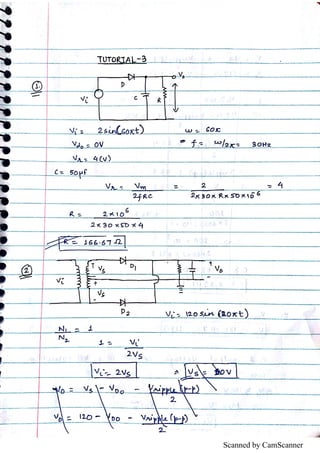 TUTORIAL-3
1
D
Vo
Vi
C
R
Vi = 2 sin(60πt)
ω = 60π
Vdo = 0V
f = ω/2π = 30Hz
Vr = 4(V)
C = 50μf
Vr = Vm / 2fRC = 2 / 2×30×R×50×10^-6 = 4
R = 2×10^6 / 2×30×50×4
R = 166.67 Ω
2
T
Vs
D1
Vi
+
Vs
-
+
Vo
-
D2
Vi = 120 sin (20πt)
N1 / N2 = 1
1 = Vi / 2Vs
Vi = 2Vs
Vs = 60V
Vo = Vs - VDo - Vripple (p-p) / 2
Vo = 120 - VDo - Vripple (p-p) / 2
Scanned by CamScanner